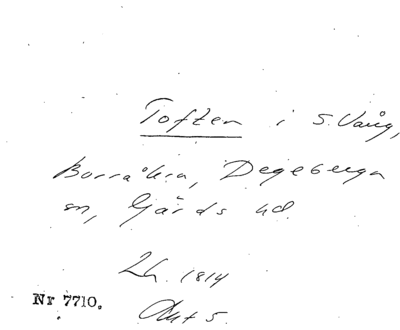 Toften i S. Vång,
Borråkra, Degeberga
sn, Gärds hd.
Lh. 1814
Akt 5.
Nr 7710.